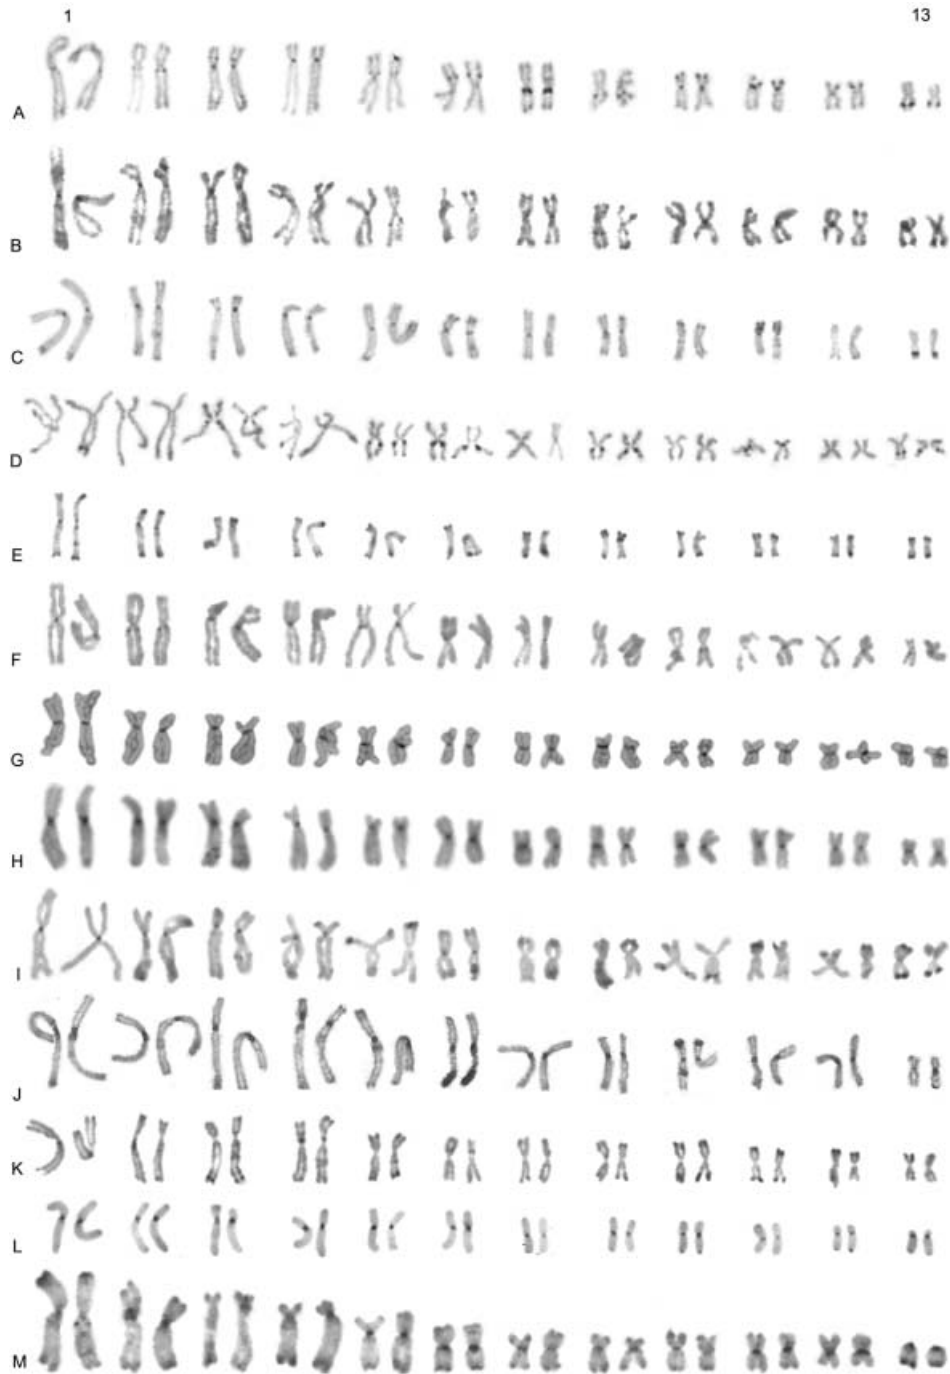 1 13
A
B
C
D
E
F
G
H
I
J
K
L
M